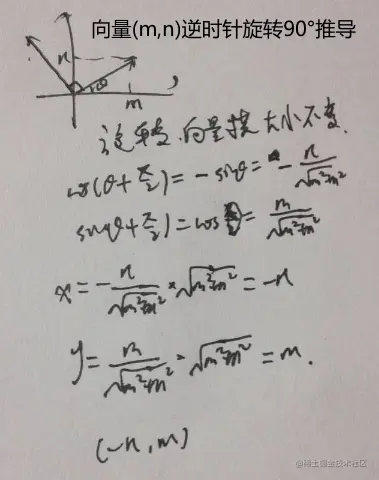 向量(m,n)逆时针旋转90°推导
n
θ
m
旋转,向量模大小不变.
cos(θ+π/2)=-sinθ=-n/√(m²+n²)
sin(θ+π/2)=cosθ=m/√(m²+n²)
x=-n/√(m²+n²)·√(m²+n²)=-n
y=m/√(m²+n²)·√(m²+n²)=m.
(-n,m)
@稀土掘金技术社区